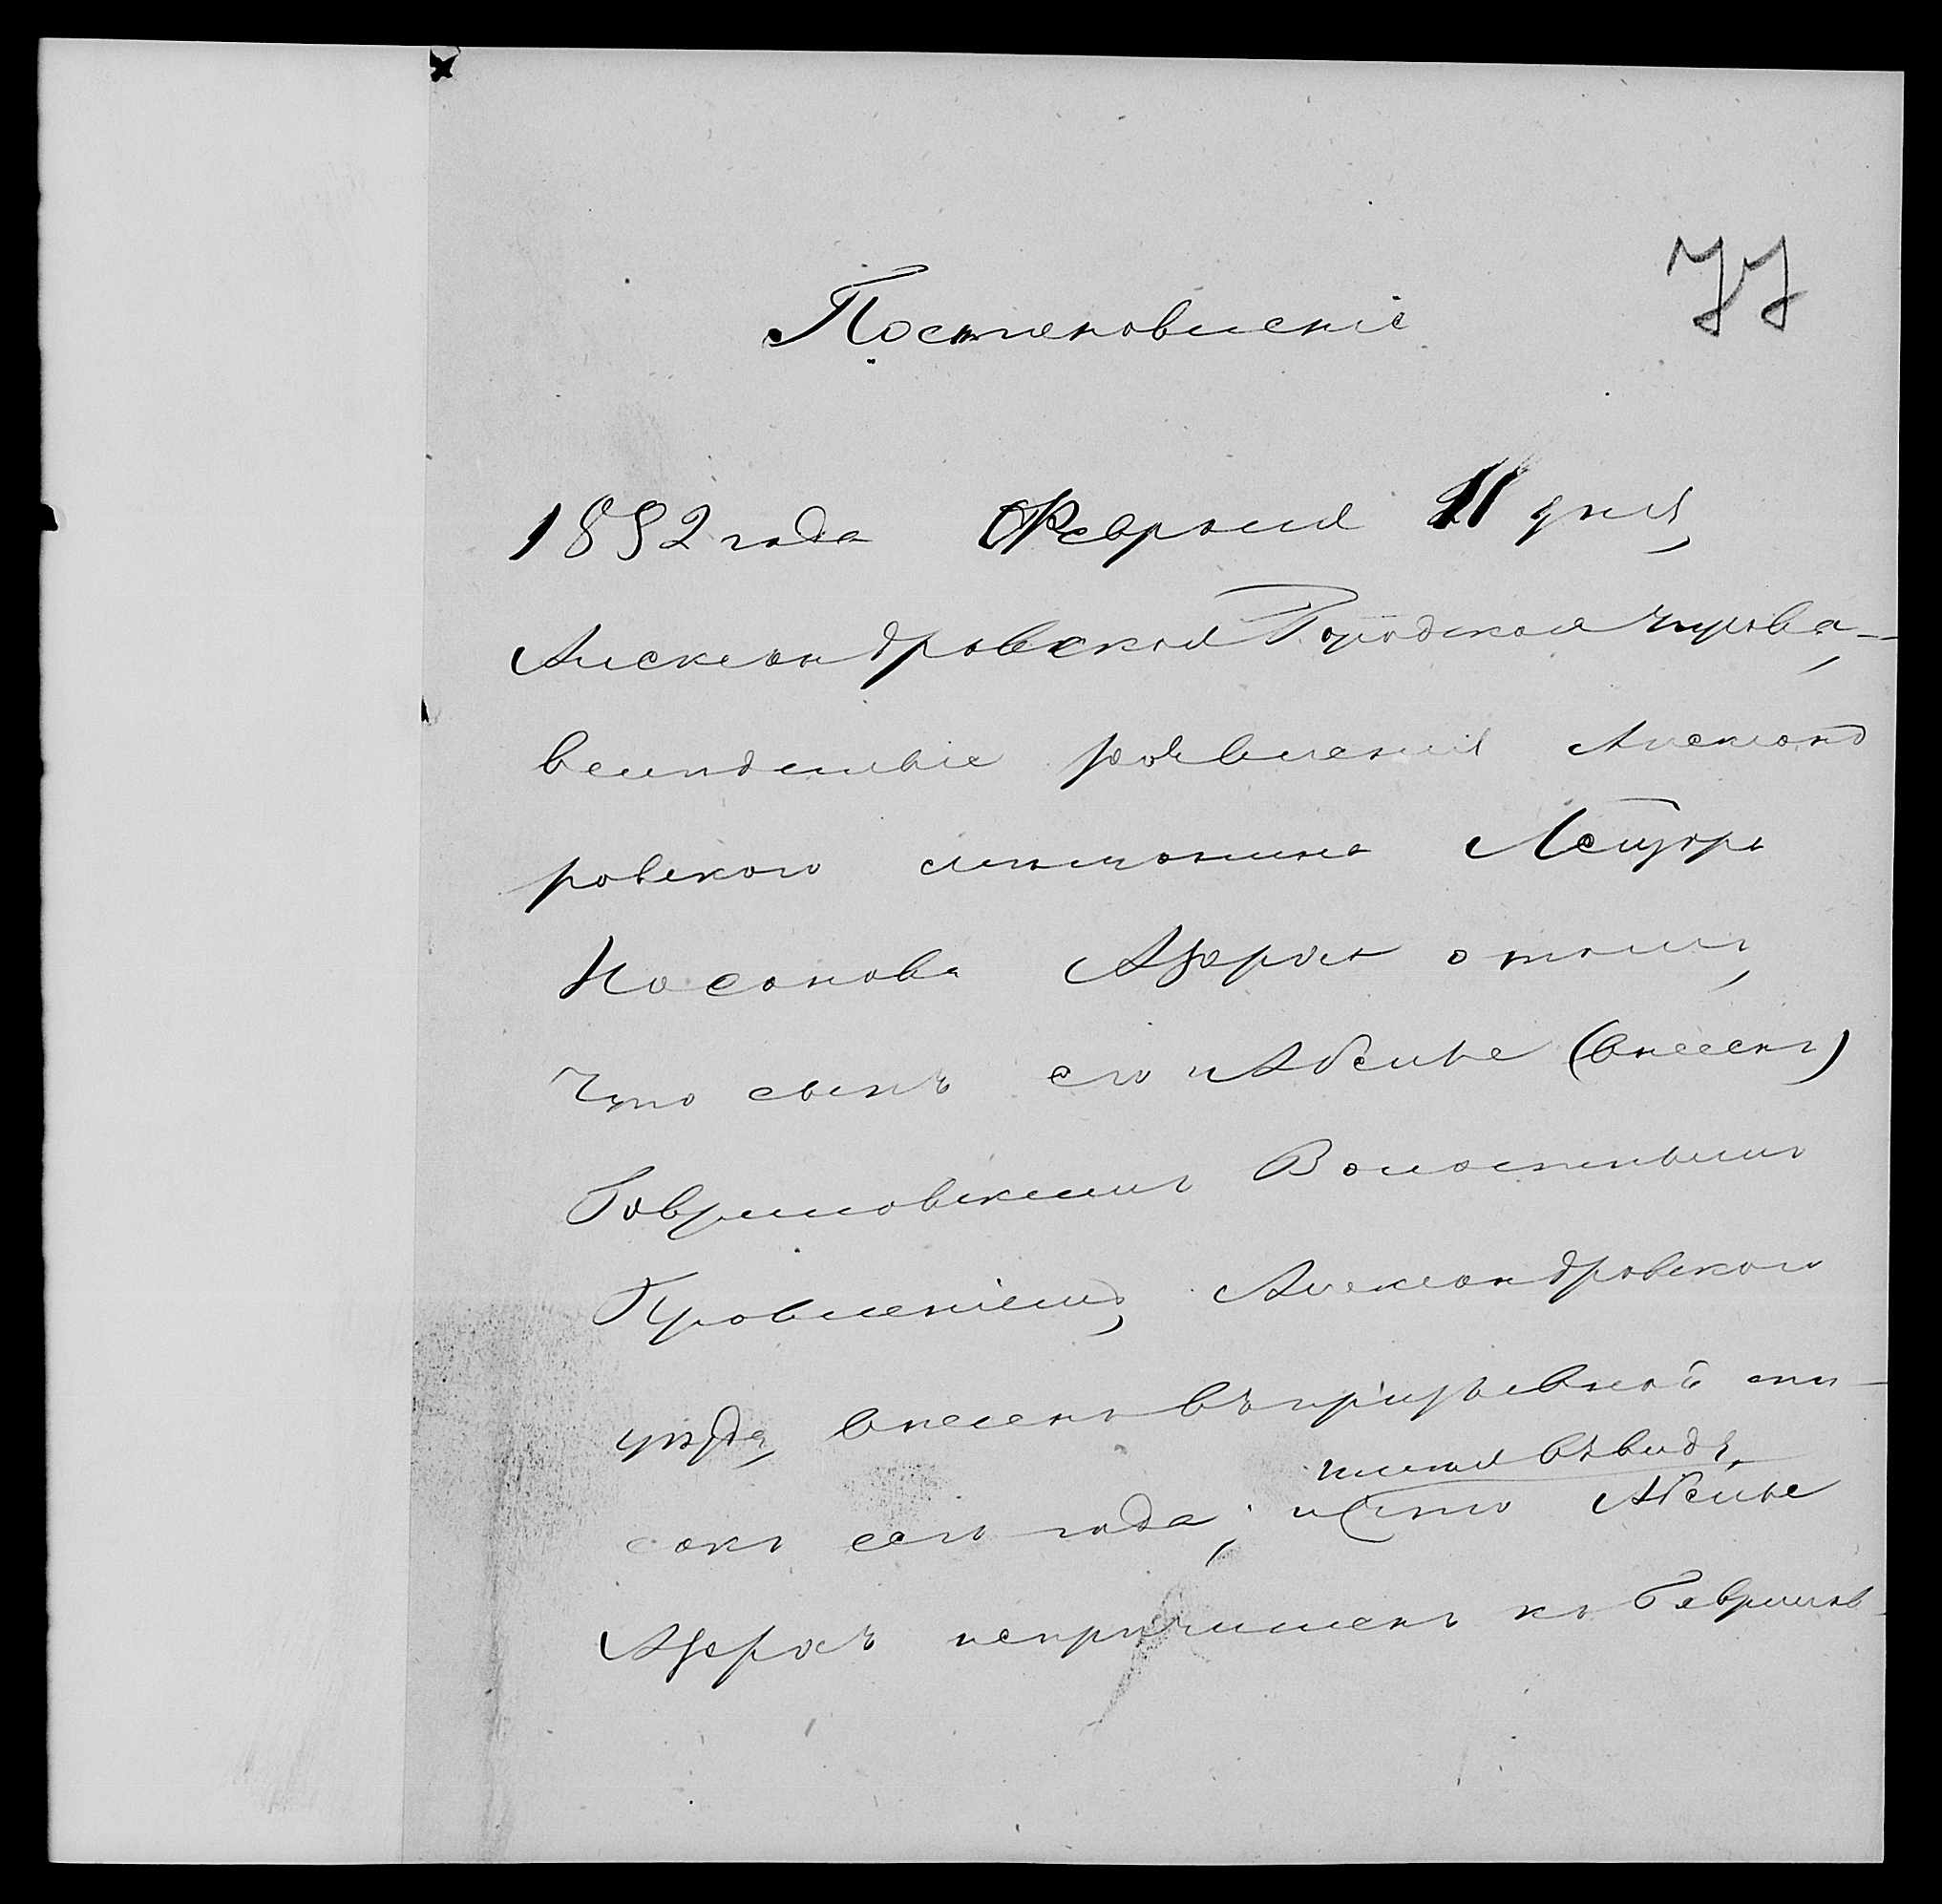 77
Постановленіе
1892 года Февраля 11 дня,
Александровская Городская Управа,
вслѣдствіе заявленія Александ
ровскаго мѣщанина Лейзера
Носонова Азарха о томъ,
что сынъ его Абель (внесенъ)
Гавриловскимъ Волостнымъ
Правленіемъ, Александровскаго
уѣзда, внесенъ въ призывной спи-
сокъ сего года; имѣя въ виду,
что Абель
Азархъ непричисленъ къ Гаврилов-